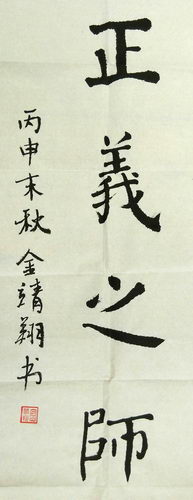 正義之師
丙申末秋 金靖翔书